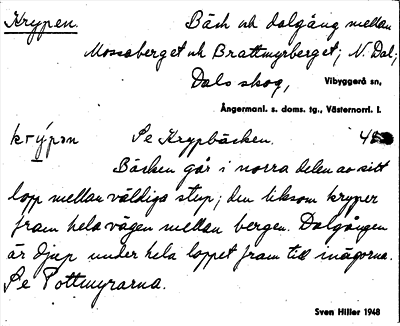 Krypen. Bäck och dalgång mellan
Mossaberget och Brattmyrberget; N. Dal;
Dals skog, Vibyggerå sn,
Ångermanl. s. doms. tg., Västernorrl. l.
krýpən Se Krypbäcken.
Bäcken går i norra delen av sitt
lopp mellan väldiga stup; den liksom kryper
fram hela vägen mellan bergen. Dalgången
är djup under hela loppet fram till mågorna.
Se Pottmyrarna.
Sven Hiller 1948